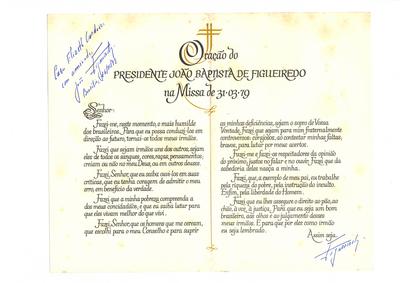 Oração do
PRESIDENTE JOÃO BAPTISTA DE FIGUEIREDO
na Missa de 31-03-79
Senhor:
Fazei-me, neste momento, o mais humilde
dos brasileiros. Para que eu possa conduzi-los em
direção ao futuro, tornai-os todos meus irmãos.
Fazei que sejam irmãos uns dos outros; sejam
eles de todos os sangues, cores, raças, pensamentos;
creiam ou não no meu Deus, ou em outros deuses.
Fazei, Senhor, que eu saiba ouvi-los em suas
críticas, que eu tenha coragem de admitir o meu
erro, em benefício da verdade.
Fazei que a minha pobreza compreenda a
dos meus concidadãos, e que eu saiba lutar para
que eles vivam melhor do que vivi.
Fazei, Senhor, que os homens que me cercam,
que escolhi para o meu Conselho e para suprir
as minhas deficiências, sejam o sopro de Vossa
Vontade, fazei que sejam para mim fraternalmente
controversos; corajosos, ao contestar minhas faltas;
bravos, para lutar por meus acertos.
Fazei-me e fazei-os respeitadores da opinião
do próximo; justos no falar e no ouvir. Fazei que da
sabedoria deles nasça a minha.
Fazei que, a exemplo de meu pai, eu trabalhe
pela riqueza do pobre, pela instrução do inculto.
Enfim, pela liberdade do Homem.
Fazei que eu lhes assegure o direito ao pão, ao
chão, à voz, à justiça. Para que eu seja um bom
brasileiro, aos olhos e ao julgamento desses
meus irmãos. E para que por eles como irmão
eu seja lembrado.
Assim seja.